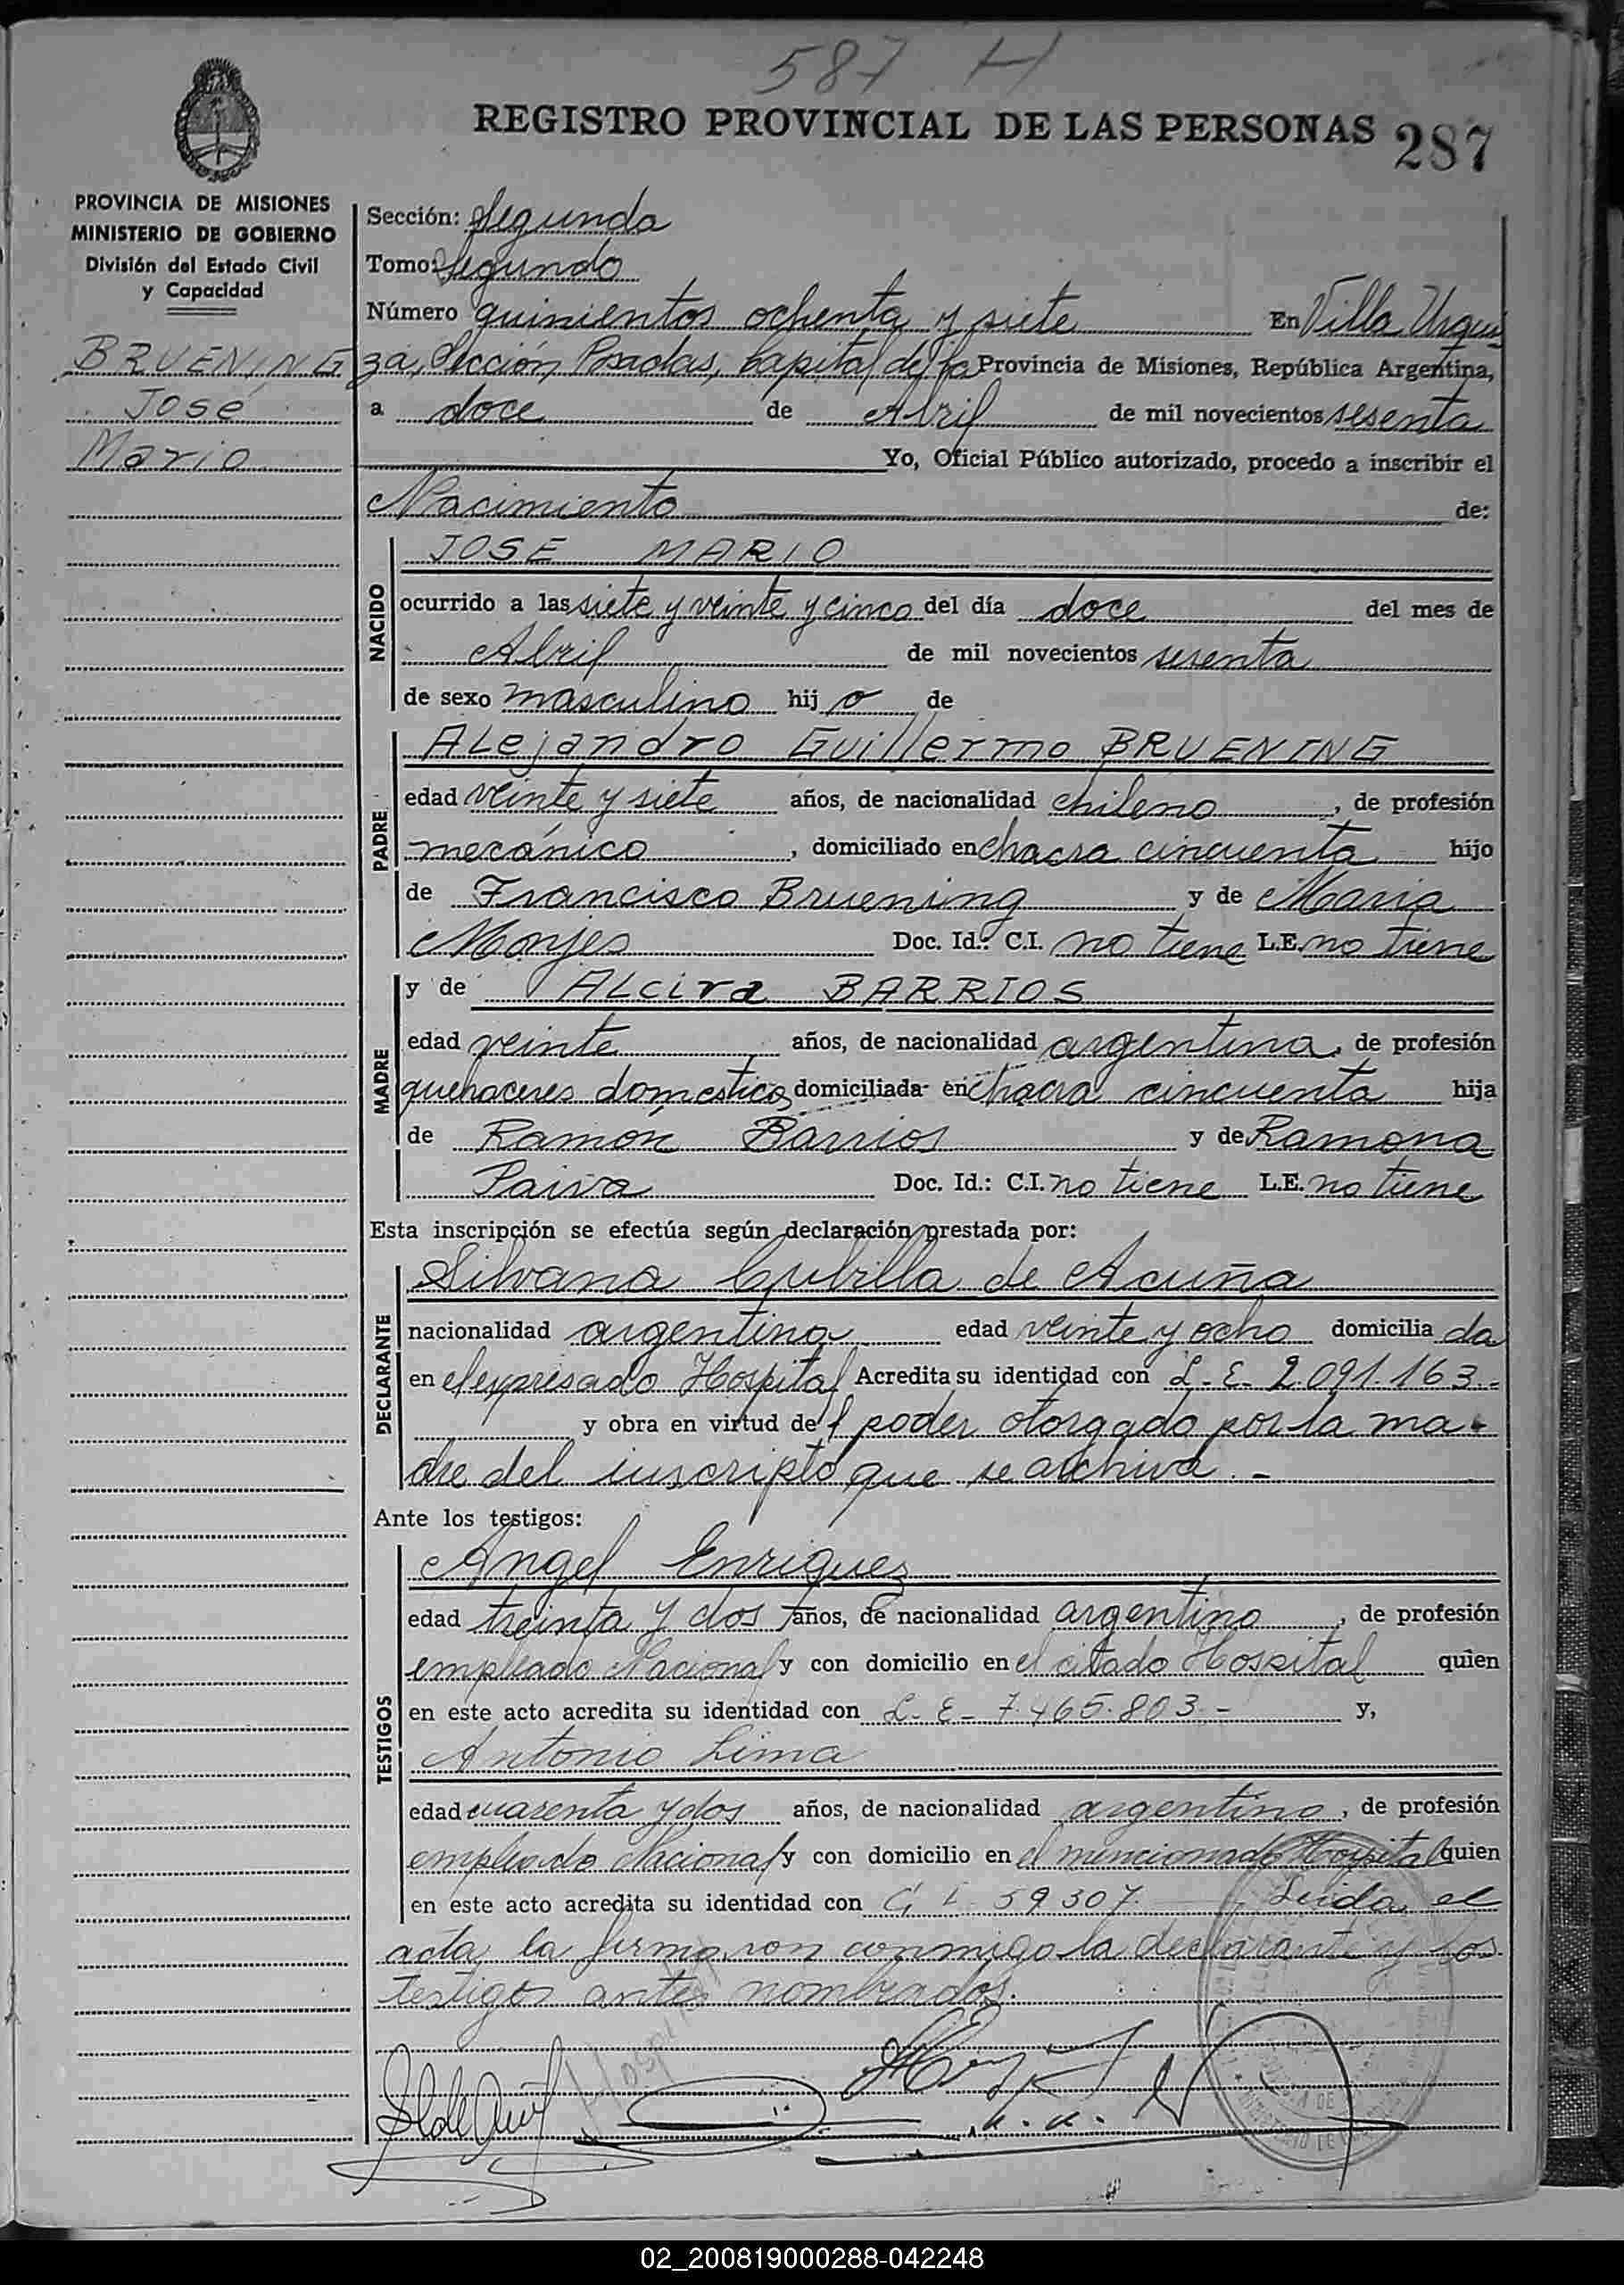 587 H
REGISTRO PROVINCIAL DE LAS PERSONAS 287
PROVINCIA DE MISIONES
MINISTERIO DE GOBIERNO
División del Estado Civil
y Capacidad
BRUENING
José
Mario
Sección: Segunda
Tomo: Segundo
Número quinientos ochenta y siete En Villa Urqui
za, Sección Posadas, Capital de la Provincia de Misiones, República Argentina,
a doce de Abril de mil novecientos sesenta
Yo, Oficial Público autorizado, procedo a inscribir el
Nacimiento de:
NACIDO
JOSE MARIO
ocurrido a las siete y veinte y cinco del día doce del mes de
Abril de mil novecientos sesenta
de sexo masculino hij o de
PADRE
Alejandro Guillermo BRUENING
edad veinte y siete años, de nacionalidad chileno, de profesión
mecánico, domiciliado en chacra cincuenta hijo
de Francisco Bruening y de Maria
Monjes Doc. Id.: C.I. no tiene L.E. no tiene
MADRE
y de ALcira BARRIOS
edad veinte años, de nacionalidad argentina, de profesión
quehaceres domesticos domiciliada en chacra cincuenta hija
de Ramón Barrios y de Ramona
Paiva Doc. Id.: C.I. no tiene L.E. no tiene
Esta inscripción se efectúa según declaración prestada por:
DECLARANTE
Silvana Cubilla de Acuña
nacionalidad argentina edad veinte y ocho domicilia da
en el expresado Hospital Acredita su identidad con L. E. 2.091.163.-
y obra en virtud del poder otorgado por la ma-
dre del inscripto que se archiva.-
Ante los testigos:
TESTIGOS
Angel Enriquez
edad treinta y dos años, de nacionalidad argentino, de profesión
empleado Nacional y con domicilio en el citado Hospital quien
en este acto acredita su identidad con L. E- 7.465.803.- y,
Antonio Lima
edad cuarenta y dos años, de nacionalidad argentino, de profesión
empleado Nacional y con domicilio en el mencionado Hospital quien
en este acto acredita su identidad con C. I. 59307. Leida el
acta la firmaron conmigo la declarante y los
testigos antes nombrados.
02_200819000288-042248